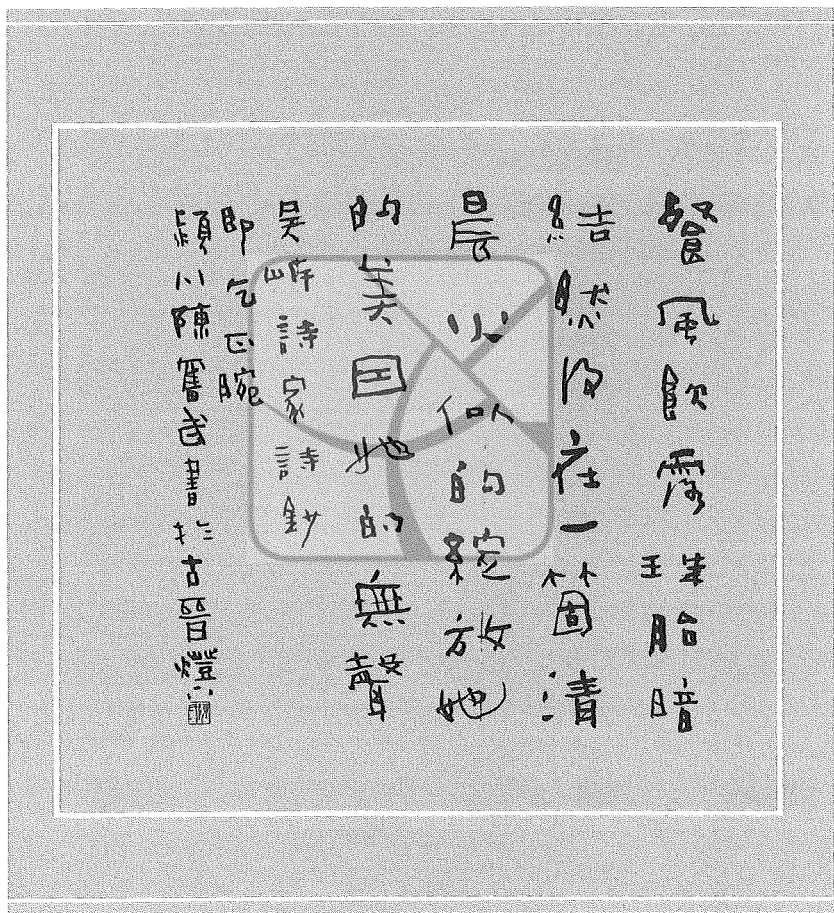 餐風飲露珠胎暗
結然後在一箇清
晨似的綻放她
的美因她的無聲
吳岸詩家詩鈔
即乞正腕
潁川陳奮武書於古晉燈下